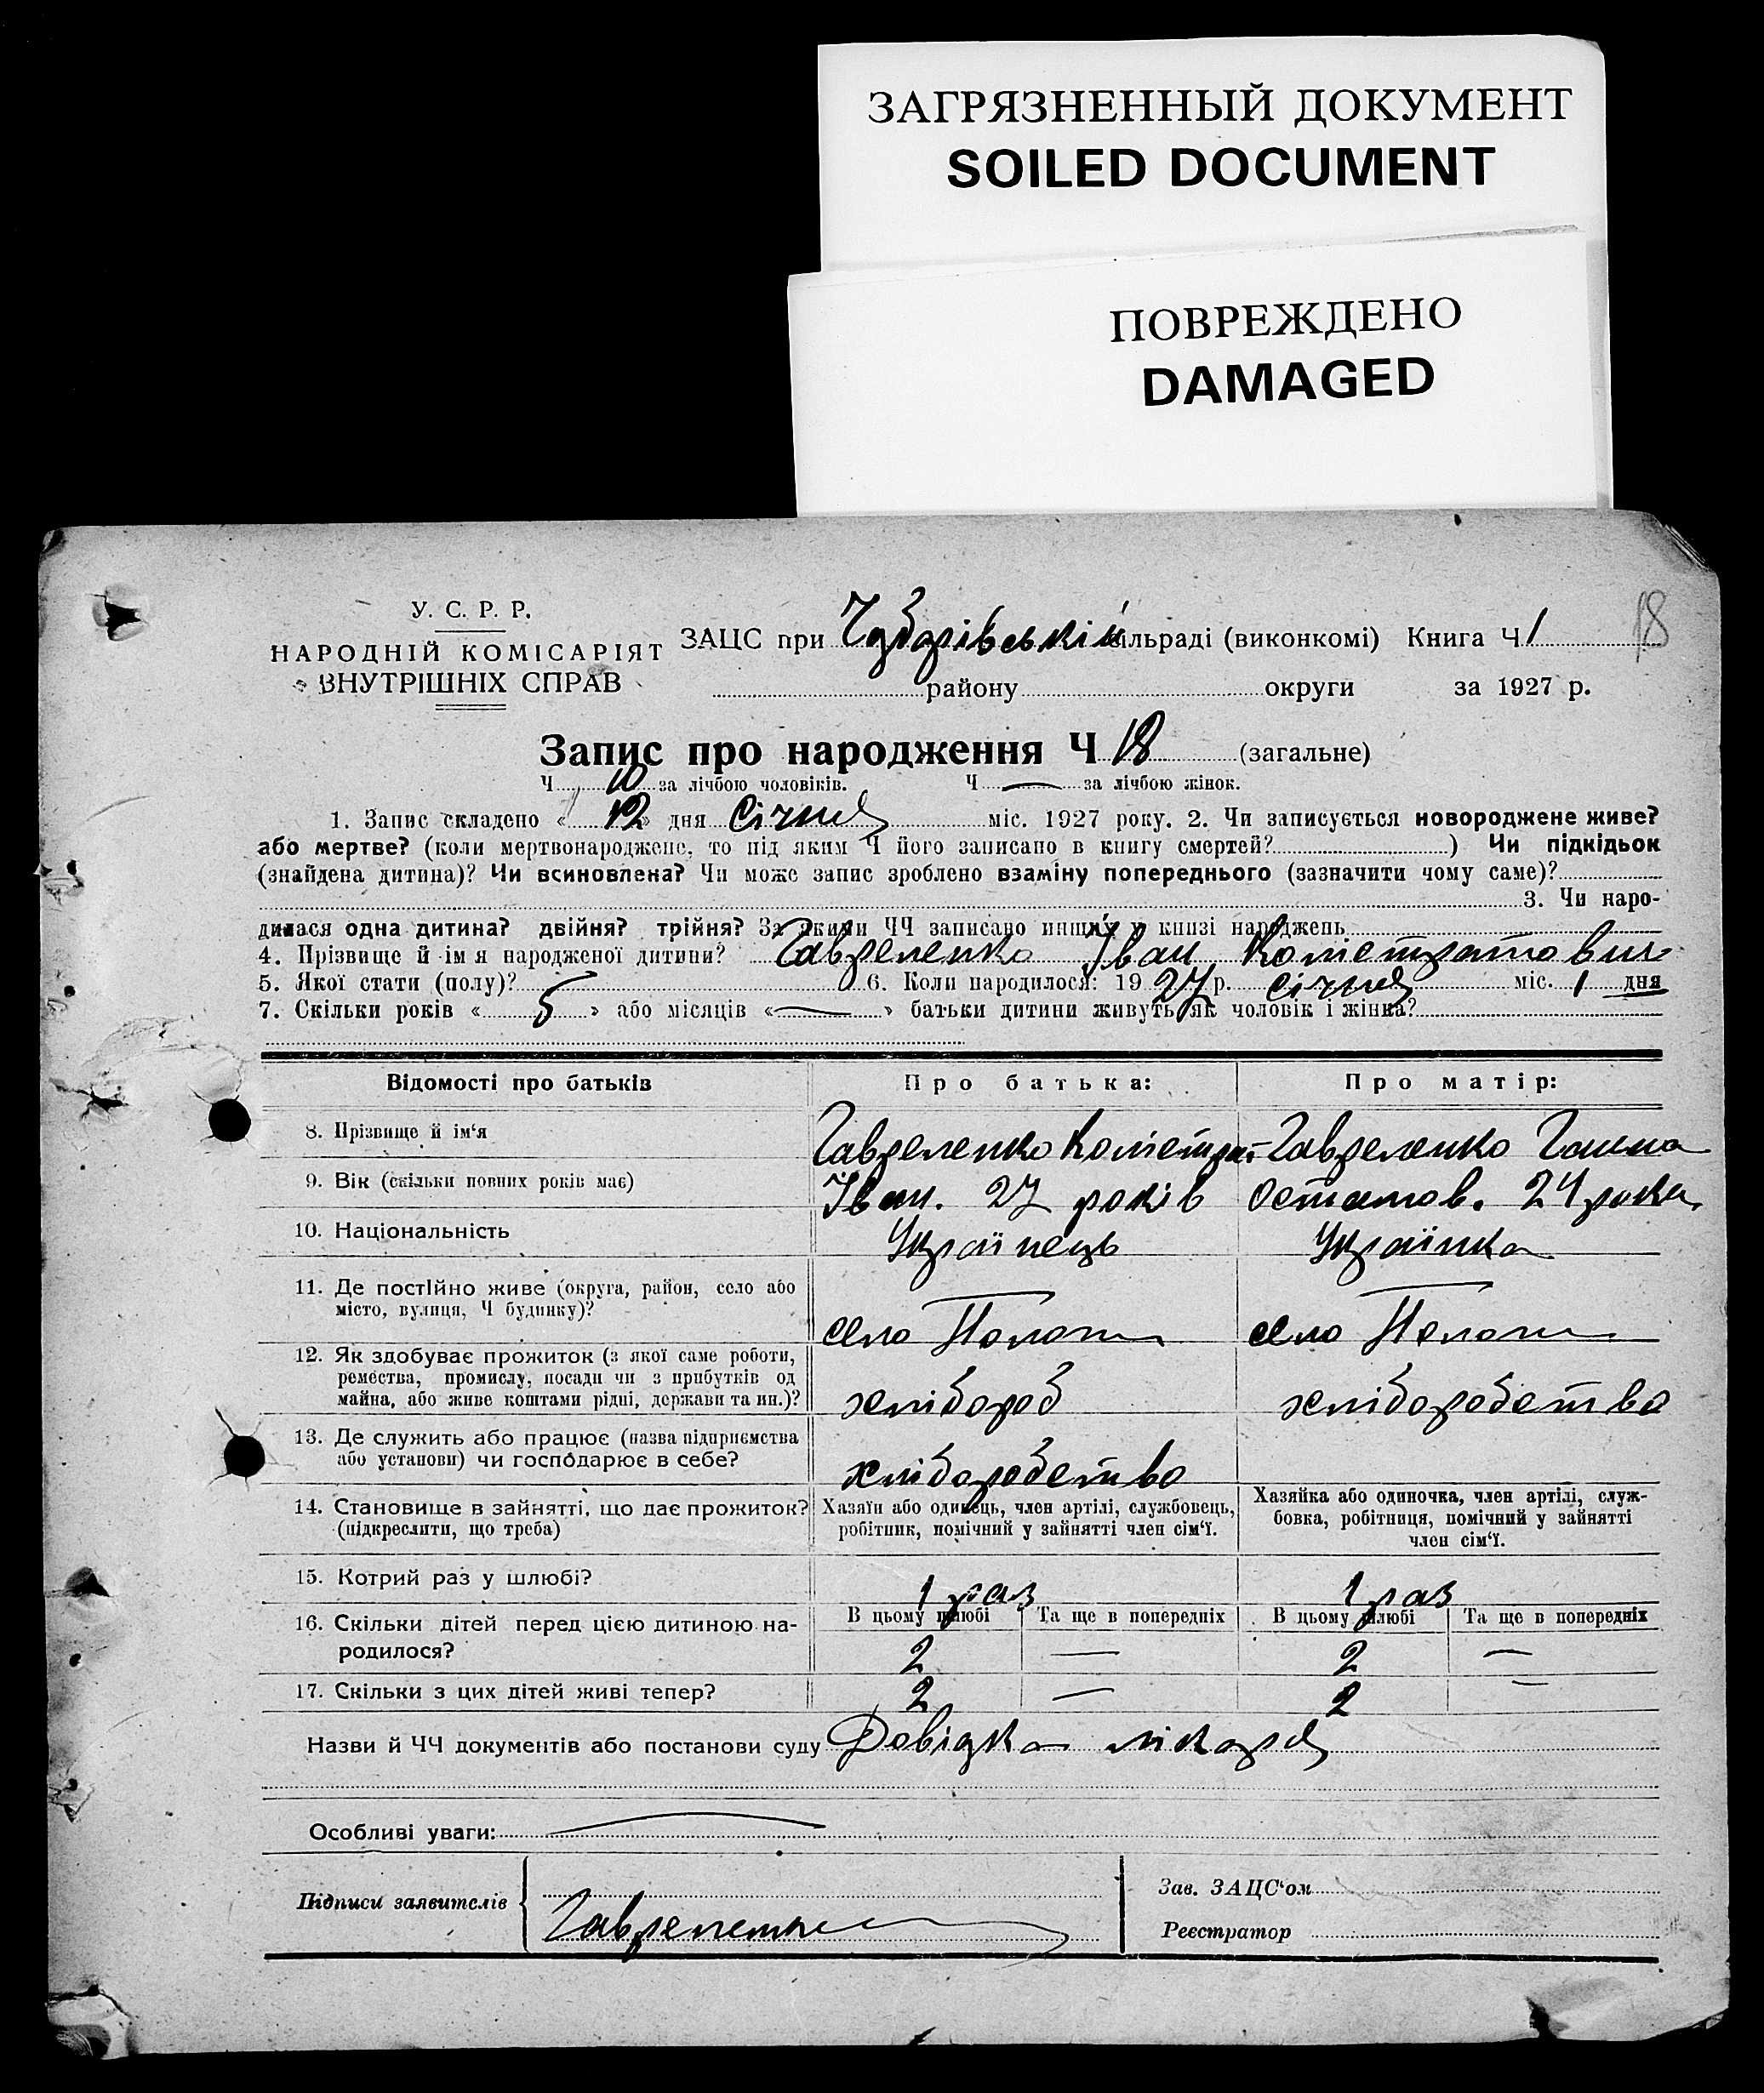 ЗАГРЯЗНЕННЫЙ ДОКУМЕНТ
SOILED DOCUMENT
ПОВРЕЖДЕНО
DAMAGED
18
У. С. Р. Р.
НАРОДНІЙ КОМІСАРІЯТ
ВНУТРІШНІХ СПРАВ
ЗАЦС при Чубарівській сільраді (виконкомі) Книга Ч 1
району округи за 1927 р.
Запис про народження Ч 18 (загальне)
Ч 10 за лічбою чоловіків. Ч — за лічбою жінок.
1. Запис складено « 12 » дня Січня міс. 1927 року. 2. Чи записується новороджене живе?
або мертве? (коли мертвонароджене, то під яким Ч його записано в книгу смертей? ) Чи підкідьок
(знайдена дитина)? Чи всиновлена? Чи може запис зроблено взаміну попереднього (зазначити чому саме)?
3. Чи наро-
дилася одна дитина? двійня? трійня? За якими ЧЧ записано инших у книзі народжень
4. Прізвище й ім'я народженої дитини? Гавреленко Іван Калістратович
5. Якої стати (полу)? 6. Коли народилося: 1927 р. січня міс. 1 дня
7. Скільки років « 5 » або місяців « — » батьки дитини живуть як чоловік і жінка?
Відомості про батьків Про батька: Про матір:
8. Прізвище й ім'я Гавреленко Калістрат Гавреленко Ганна
9. Вік (скільки повних років має) Іван. 27 років Остапов. 24 роки
10. Національність Українець Українка
11. Де постійно живе (округа, район, село або
місто, вулиця, Ч будинку)? село Пологи село Пологи
12. Як здобуває прожиток (з якої саме роботи,
ремества, промислу, посади чи з прибутків од
майна, або живе коштами рідні, держави та ин.)? хлібороб хліборобство
13. Де служить або працює (назва підприємства
або установи) чи господарює в себе? хліборобство
14. Становище в зайнятті, що дає прожиток? Хазяїн або одинець, член артілі, службовець, Хазяйка або одиночка, член артілі, служ-
(підкреслити, що треба) робітник, помічний у зайнятті член сім'ї. бовка, робітниця, помічний у зайнятті
член сім'ї.
15. Котрий раз у шлюбі? 1 раз 1 раз
В цьому шлюбі Та ще в попередніх В цьому шлюбі Та ще в попередніх
16. Скільки дітей перед цією дитиною на-
родилося? 2 — 2 —
17. Скільки з цих дітей живі тепер? 2 — 2 —
Назви й ЧЧ документів або постанови суду Довідка лікаря
Особливі уваги:
Підписи заявителів Зав. ЗАЦС'ом
Гавреленко Реєстратор